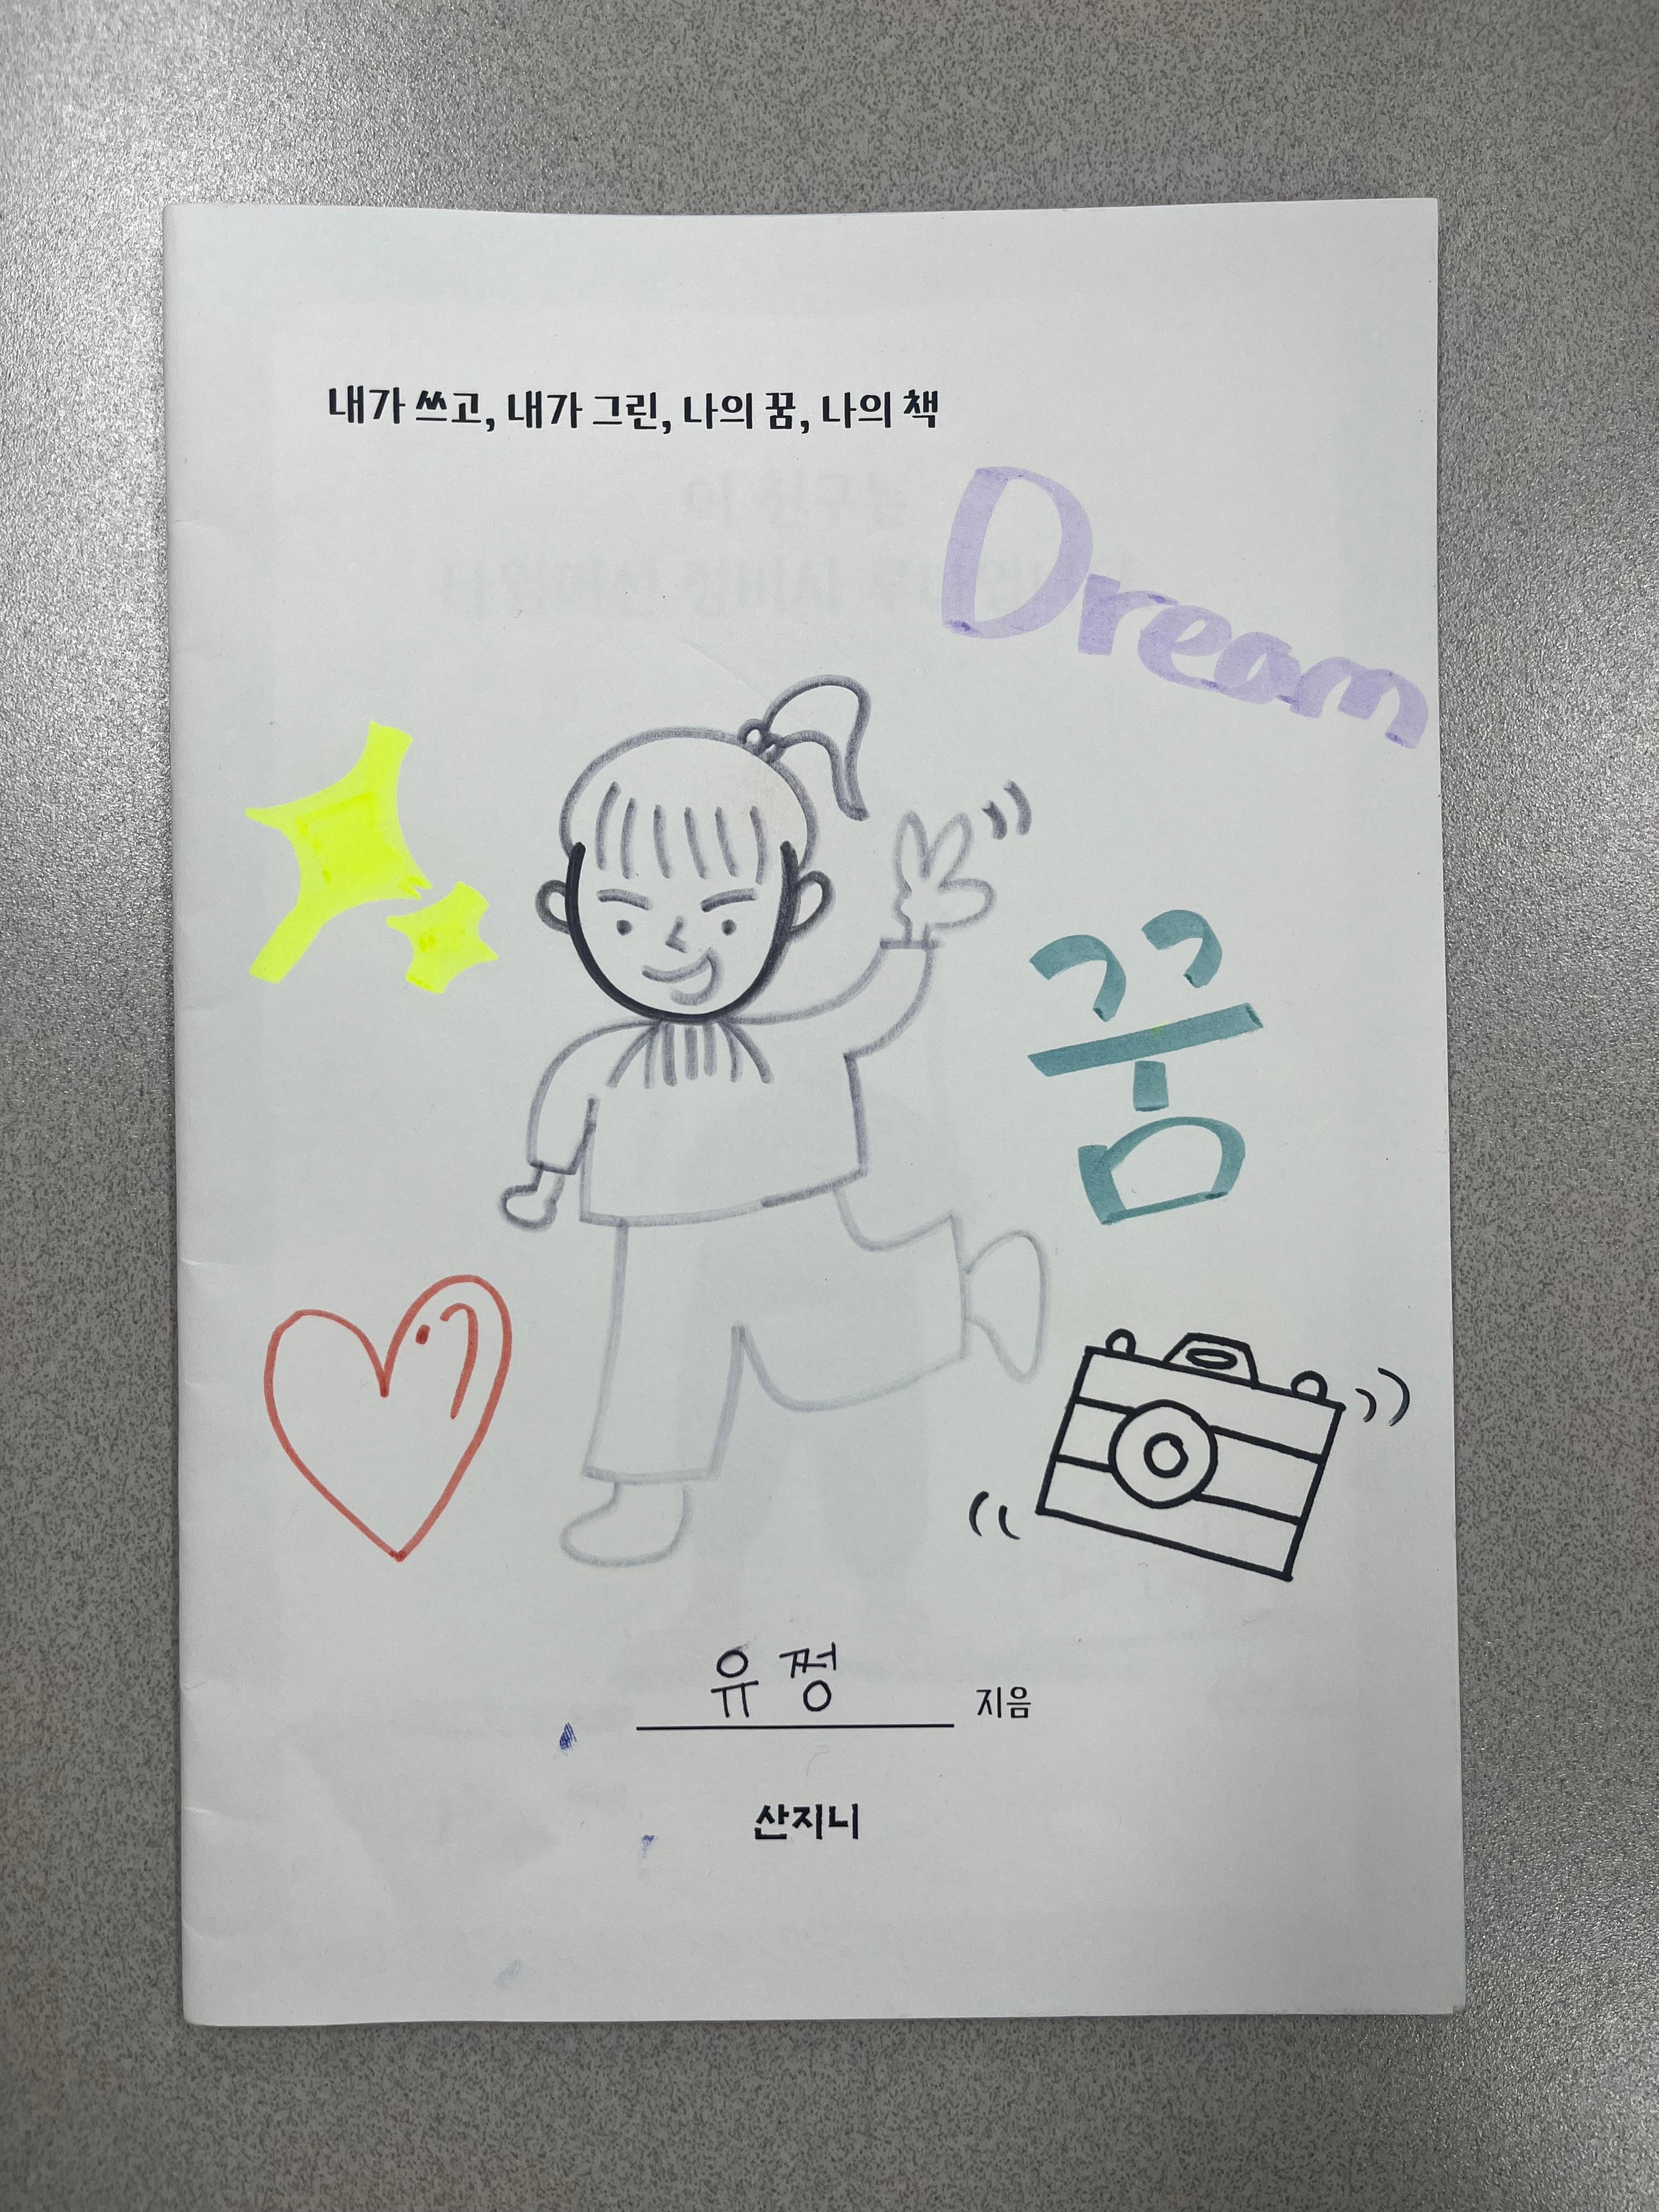 내가 쓰고, 내가 그린, 나의 꿈, 나의 책
Dream
꿈
유쩡
지음
산지니